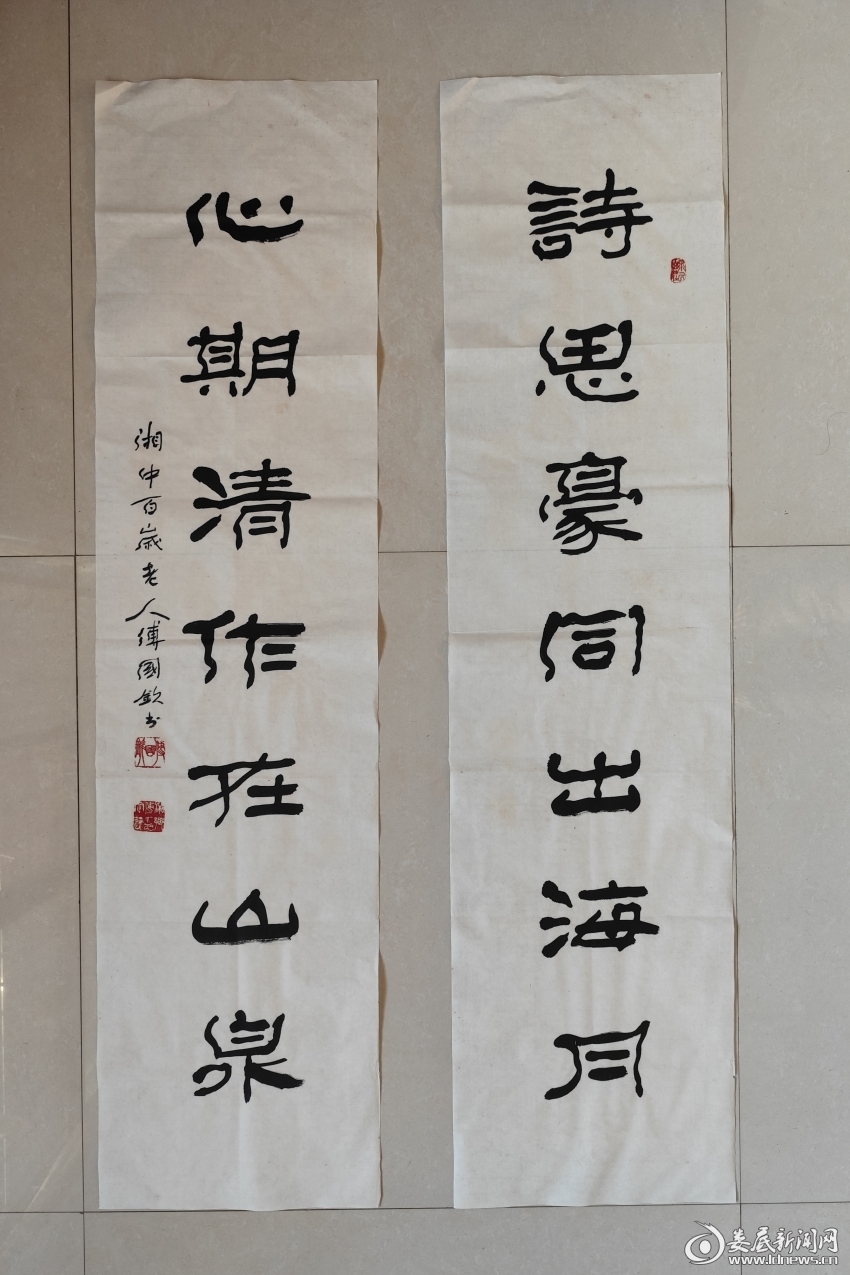 詩思豪同出海月
心期清作在山泉
湘中百歲老人傅國欽书
娄底新闻网
www.ldnews.cn